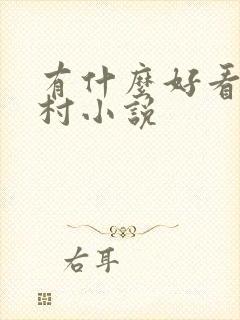 有什麼好看
村小說
右耳